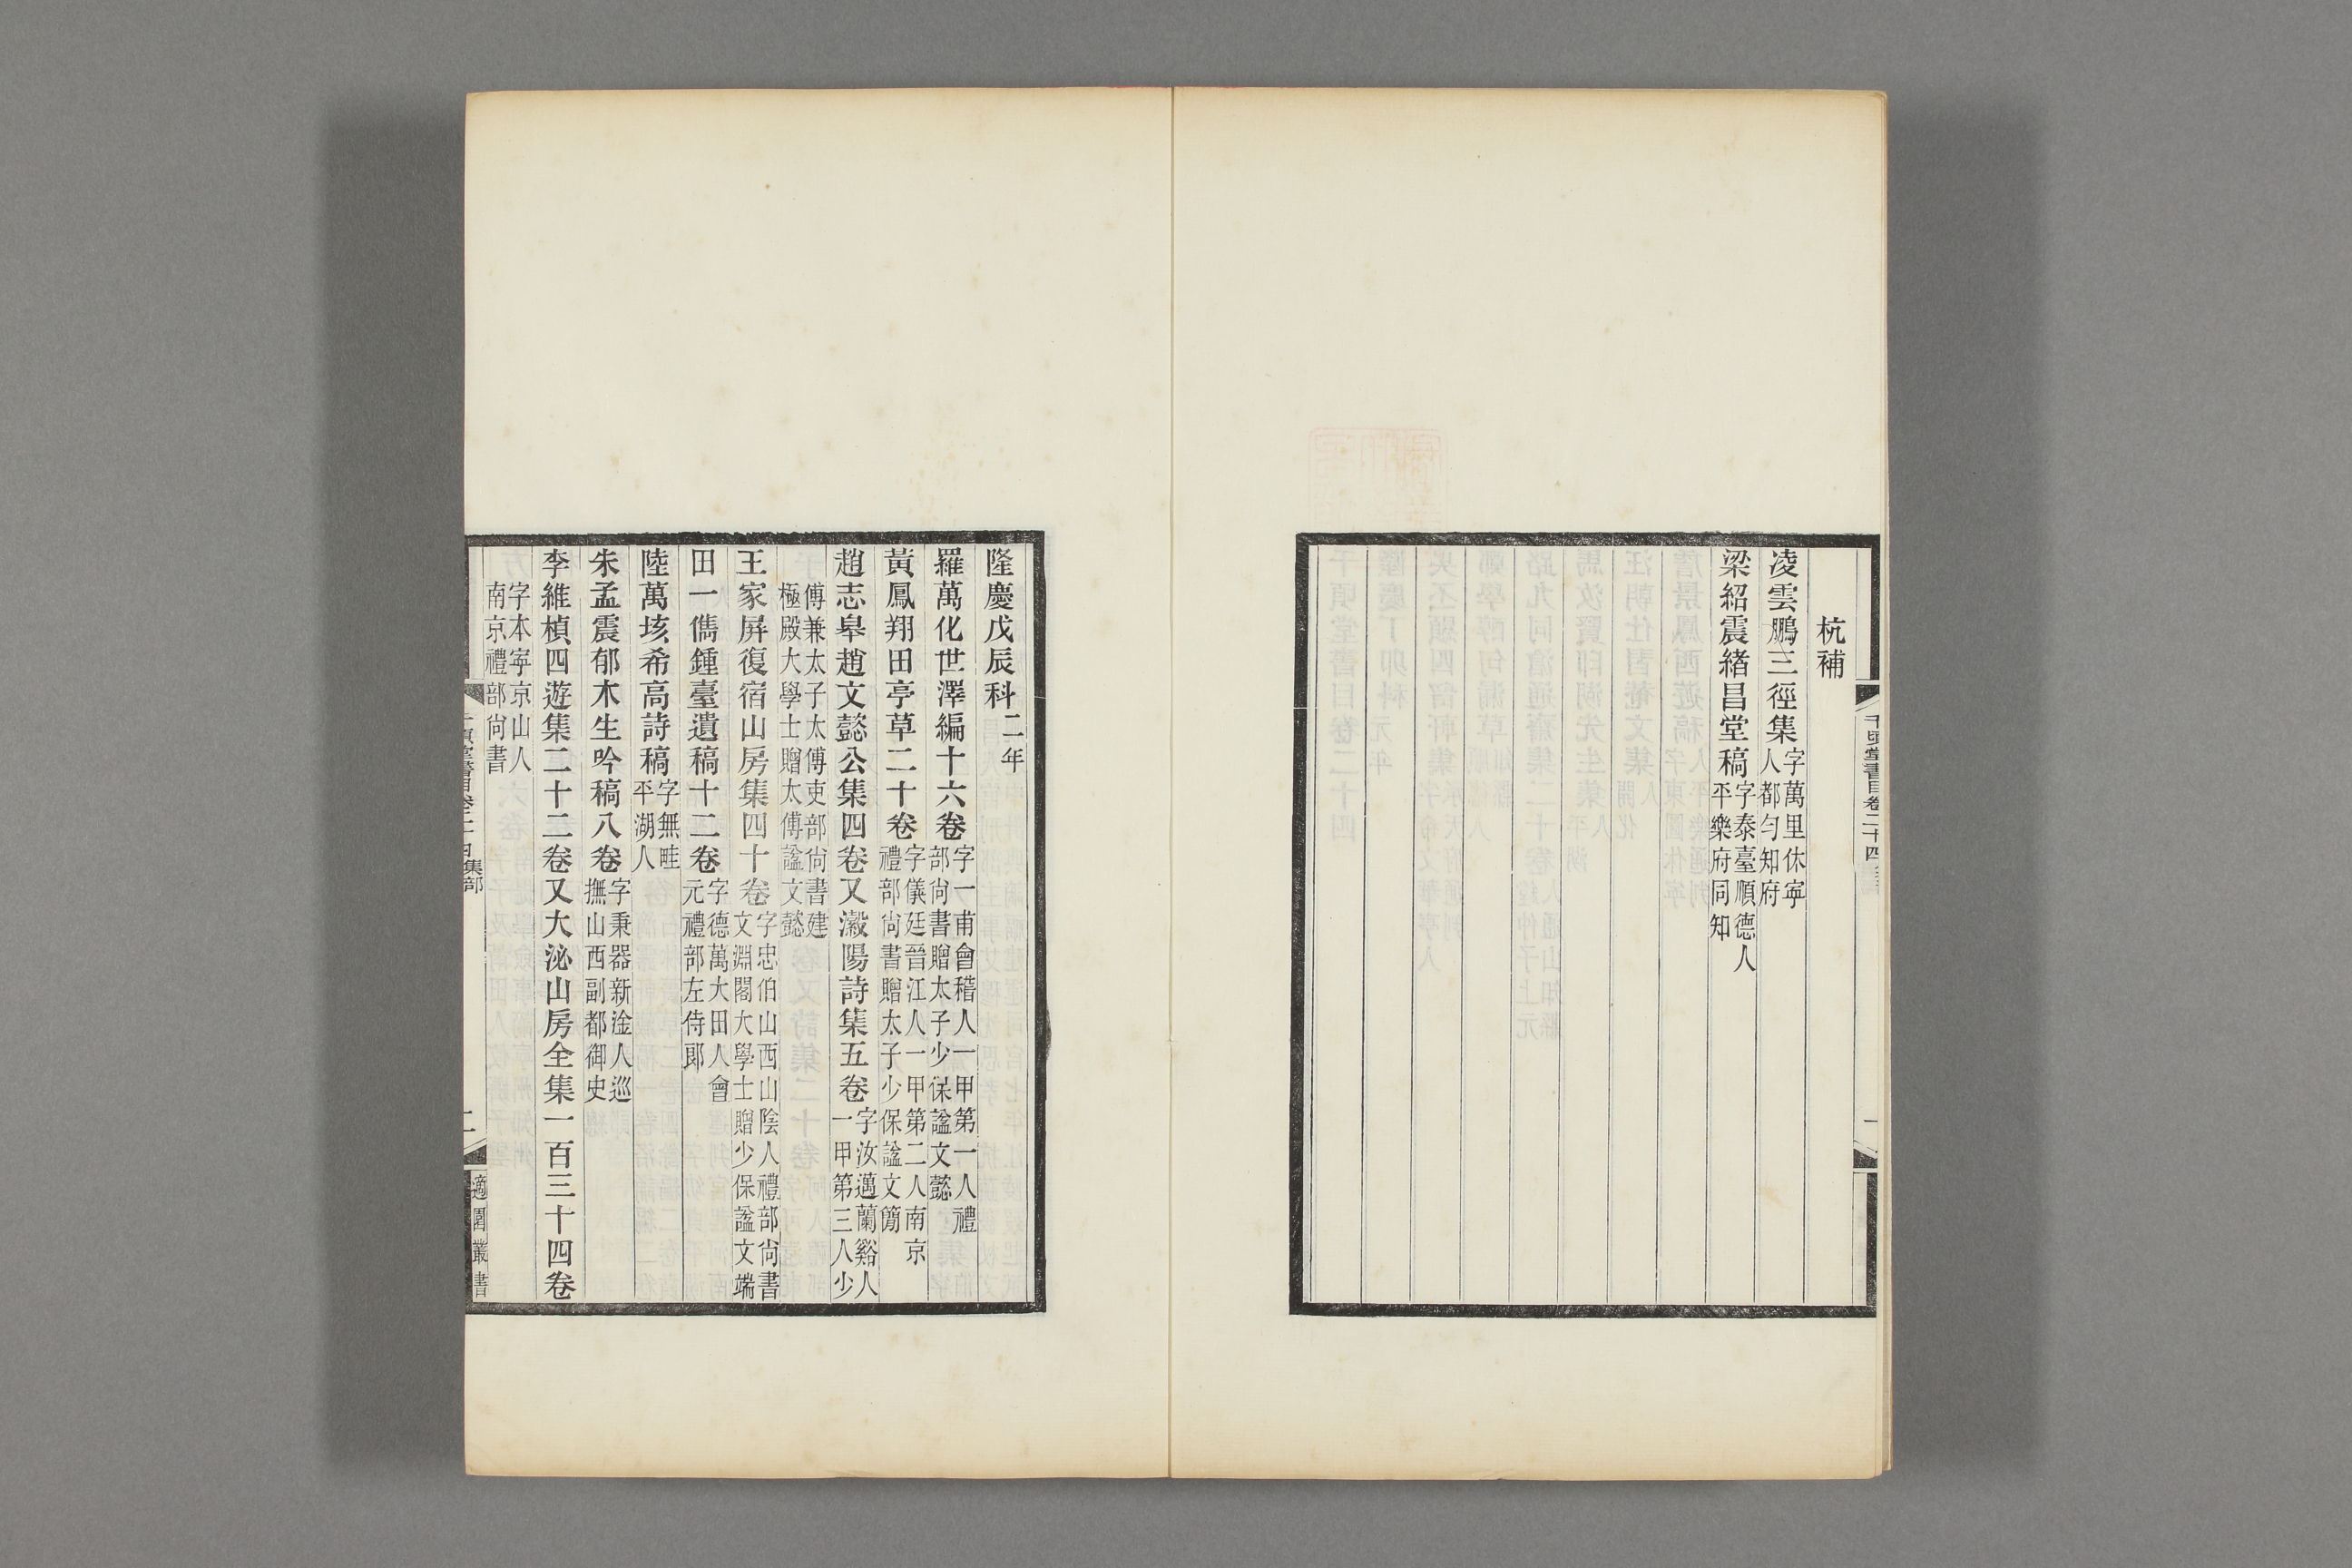 杭補
凌雲鵬三徑集字萬里休寧人都勻知府
梁紹震緒昌堂稿字泰臺順德人平樂府同知
隆慶戊辰科二年
羅萬化世澤編十六卷字一甫會稽人一甲第一人禮部尚書贈太子少保諡文懿
黃鳳翔田亭草二十卷字儀廷晉江人一甲第二人南京禮部尚書贈太子少保諡文簡
趙志皋趙文懿公集四卷又瀫陽詩集五卷字汝邁蘭谿人一甲第三人少
傅兼太子太傅吏部尚書建極殿大學士贈太傅諡文懿
王家屏復宿山房集四十卷字忠伯山西山陰人禮部尚書文淵閣大學士贈少保諡文端
田一儁鍾臺遺稿十二卷字德萬大田人會元禮部左侍郎
陸萬垓希高詩稿字無畦平湖人
朱孟震郁木生吟稿八卷字秉器新淦人巡撫山西副都御史
李維楨四遊集二十二卷又大泌山房全集一百三十四卷
字本寧京山人南京禮部尚書
適園叢書